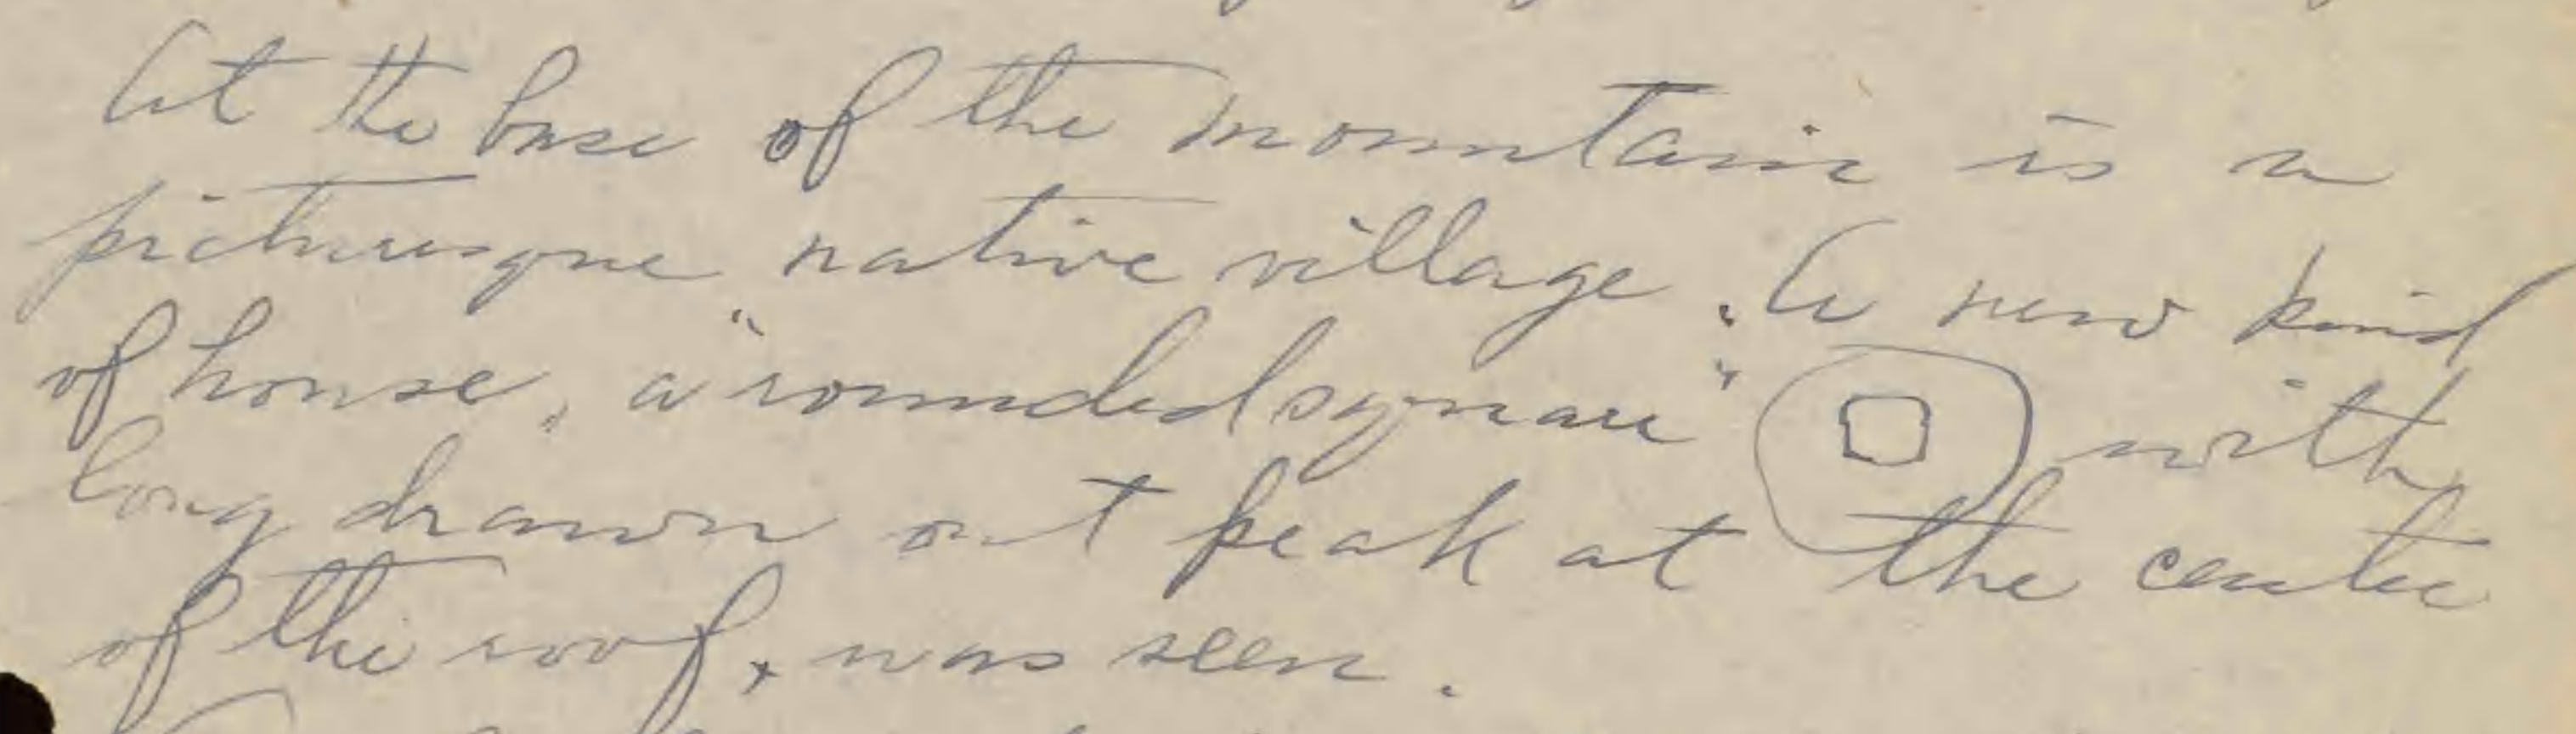 At the base of the mountain is a
picturesque native village. A new kind
of house, a "rounded square" with
long drawn out peak at the center
of the roof, was seen.